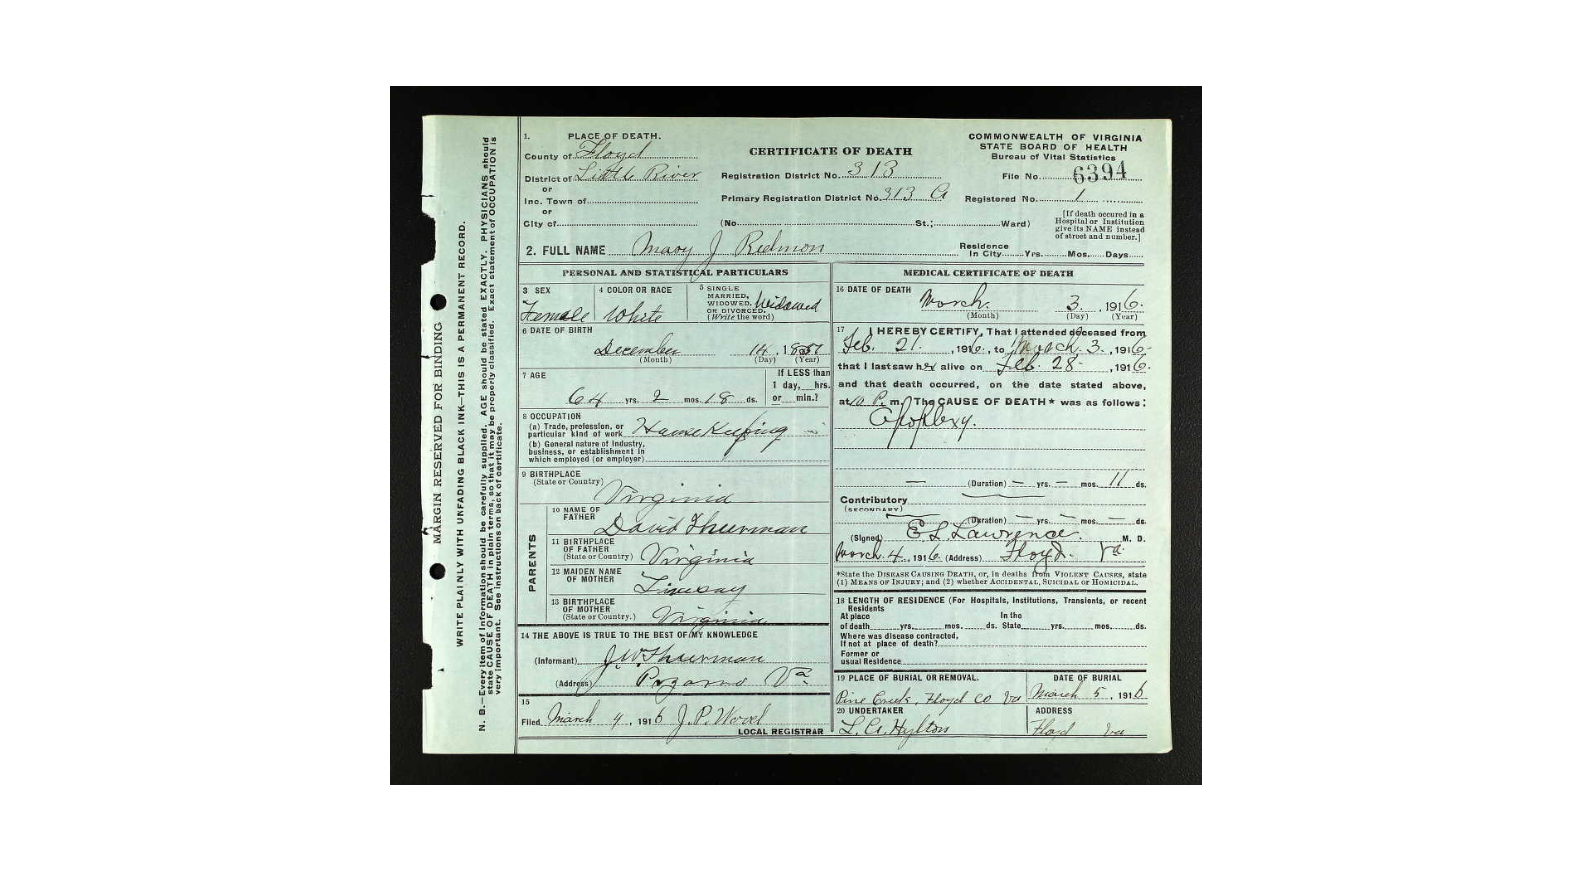 1. PLACE OF DEATH.
County of Floyd
District of Little River
or
Inc. Town of
or
City of
CERTIFICATE OF DEATH
Registration District No. 313
Primary Registration District No. 313 A
(No. St.; Ward)
COMMONWEALTH OF VIRGINIA
STATE BOARD OF HEALTH
Bureau of Vital Statistics
File No. 6394
Registered No. 1
[If death occured in a
Hospital or Institution
give its NAME instead
of street and number.]
2. FULL NAME Mary J Redmon
Residence
In City Yrs. Mos. Days
PERSONAL AND STATISTICAL PARTICULARS
3 SEX
Female
4 COLOR OR RACE
White
5 SINGLE
MARRIED,
WIDOWED,
OR DIVORCED.
(Write the word)
Widowed
6 DATE OF BIRTH
December 14, 1851
(Month) (Day) (Year)
7 AGE
64 yrs. 2 mos. 18 ds.
If LESS than
1 day, hrs.
or min.?
8 OCCUPATION
(a) Trade, profession, or
particular kind of work House Keeping
(b) General nature of industry,
business, or establishment in
which employed (or employer)
9 BIRTHPLACE
(State or Country)
Virginia
PARENTS
10 NAME OF
FATHER
David Thurman
11 BIRTHPLACE
OF FATHER
(State or Country) Virginia
12 MAIDEN NAME
OF MOTHER
13 BIRTHPLACE
OF MOTHER
(State or Country.) Virginia
14 THE ABOVE IS TRUE TO THE BEST OF MY KNOWLEDGE
(Informant) J.W. Thurman
(Address) Va
15
Filed March 4, 1916 J.P. Wood
LOCAL REGISTRAR
MEDICAL CERTIFICATE OF DEATH
16 DATE OF DEATH
March 3, 1916
(Month) (Day) (Year)
17 I HEREBY CERTIFY, That I attended deceased from
Feb. 21, 1916, to March 3, 1916
that I last saw her alive on Feb. 28, 1916.
and that death occurred, on the date stated above,
at 10 P. m. The CAUSE OF DEATH* was as follows:
Apoplexy.
(Duration) yrs. mos. 11 ds.
Contributory
(SECONDARY)
(Duration) yrs. mos. ds.
(Signed) E L Lawrence M. D.
March 4, 1916 (Address) Floyd Va
*State the DISEASE CAUSING DEATH, or, in deaths from VIOLENT CAUSES, state
(1) MEANS OF INJURY; and (2) whether ACCIDENTAL, SUICIDAL or HOMICIDAL.
18 LENGTH OF RESIDENCE (For Hospitals, Institutions, Transients, or recent
Residents
At place In the
of death yrs. mos. ds. State yrs. mos. ds.
Where was disease contracted,
if not at place of death?
Former or
usual Residence
19 PLACE OF BURIAL OR REMOVAL.
Pine Creek, Floyd Co Va
DATE OF BURIAL
March 5, 1916
20 UNDERTAKER
L. A. Hylton
ADDRESS
Floyd Va
MARGIN RESERVED FOR BINDING
WRITE PLAINLY WITH UNFADING BLACK INK—THIS IS A PERMANENT RECORD.
N. B.—Every item of information should be carefully supplied. AGE should be stated EXACTLY. PHYSICIANS should
state CAUSE OF DEATH in plain terms, so that it may be properly classified. Exact statement of OCCUPATION is
very important. See instructions on back of certificate.